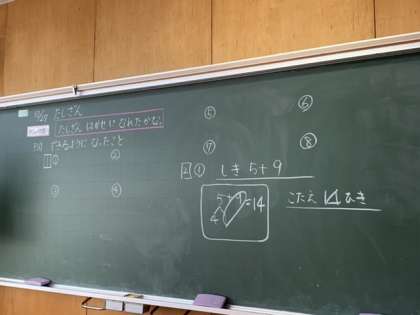 たしざん
たしざん はかせに なれたかな?
できるように なったこと
1 ① ②
③ ④
⑤ ⑥
⑦ ⑧
2 ① しき 5+9
=14
4
こたえ 14 ひき